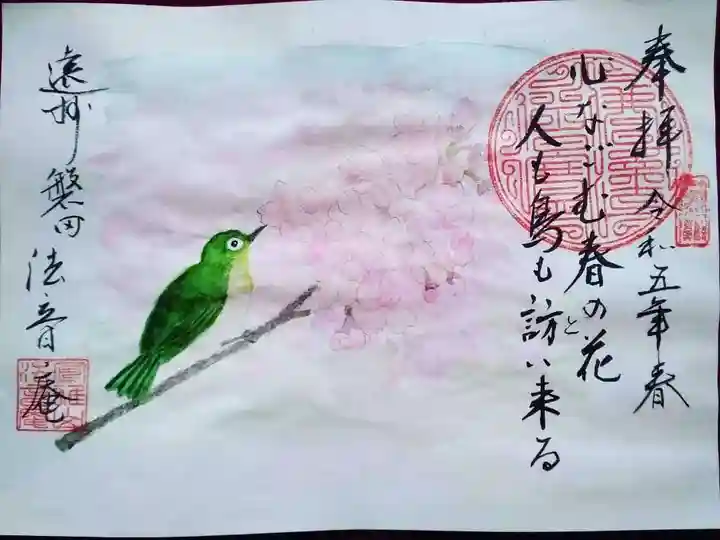 奉拝 令和五年春
心なごむ春の花と
人も鳥も訪い来る
遠州磐田 法音庵